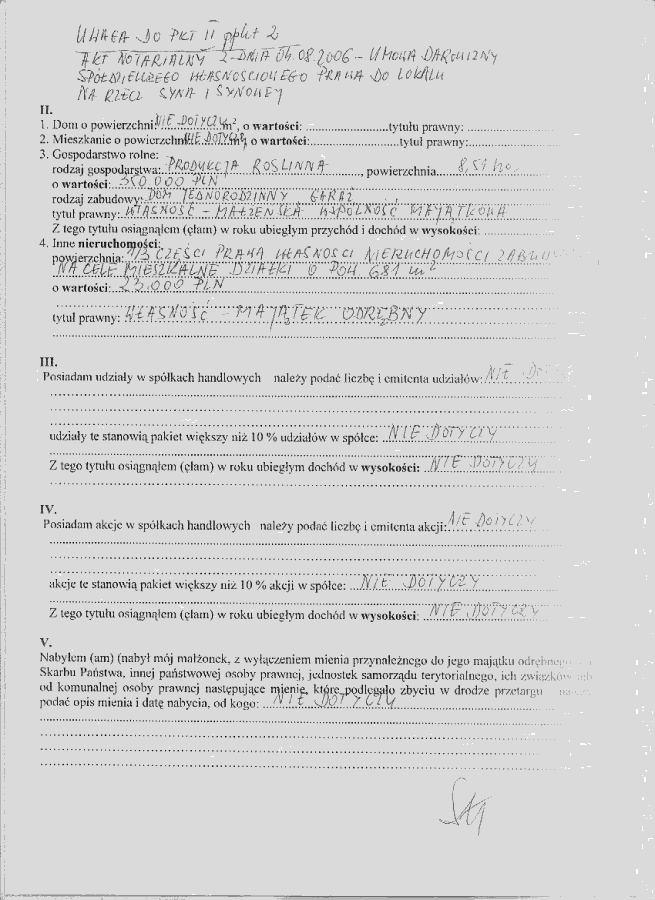 UWAGA DO PKT II ppkt 2
AKT NOTARIALNY Z DNIA 04.08.2006 – UMOWA DAROWIZNY
SPÓŁDZIELCZEGO WŁASNOŚCIOWEGO PRAWA DO LOKALU
NA RZECZ SYNA I SYNOWEJ
II.
1. Dom o powierzchni: NIE DOTYCZY m², o wartości: ........................tytułu prawny: ........................
2. Mieszkanie o powierzchni: NIE DOTYCZY m², o wartości: ........................tytuł prawny:........................
3. Gospodarstwo rolne:
rodzaj gospodarstwa: PRODUKCJA ROŚLINNA, powierzchnia 8,51 ha
o wartości: 350 000 PLN
rodzaj zabudowy: DOM JEDNORODZINNY, GARAŻ
tytuł prawny: WŁASNOŚĆ – MAŁŻEŃSKA WSPÓLNOŚĆ MAJĄTKOWA
Z tego tytułu osiągnąłem (ęłam) w roku ubiegłym przychód i dochód w wysokości: ........................
4. Inne nieruchomości:
powierzchnia: 1/3 CZĘŚCI PRAWA WŁASNOŚCI NIERUCHOMOŚCI
NA CELE MIESZKALNE DZIAŁKI O POW 681 m²
o wartości: 23.000 PLN
tytuł prawny: WŁASNOŚĆ – MAJĄTEK ODRĘBNY
III.
Posiadam udziały w spółkach handlowych należy podać liczbę i emitenta udziałów: NIE DOTYCZY
udziały te stanowią pakiet większy niż 10 % udziałów w spółce: NIE DOTYCZY
Z tego tytułu osiągnąłem (ęłam) w roku ubiegłym dochód w wysokości: NIE DOTYCZY
IV.
Posiadam akcje w spółkach handlowych należy podać liczbę i emitenta akcji: NIE DOTYCZY
akcje te stanowią pakiet większy niż 10 % akcji w spółce: NIE DOTYCZY
Z tego tytułu osiągnąłem (ęłam) w roku ubiegłym dochód w wysokości: NIE DOTYCZY
V.
Nabyłem (am) (nabył mój małżonek, z wyłączeniem mienia przynależnego do jego majątku odrębnego
Skarbu Państwa, innej państwowej osoby prawnej, jednostek samorządu terytorialnego, ich związków lub
od komunalnej osoby prawnej następujące mienie, które podlegało zbyciu w drodze przetargu
podać opis mienia i datę nabycia, od kogo: NIE DOTYCZY